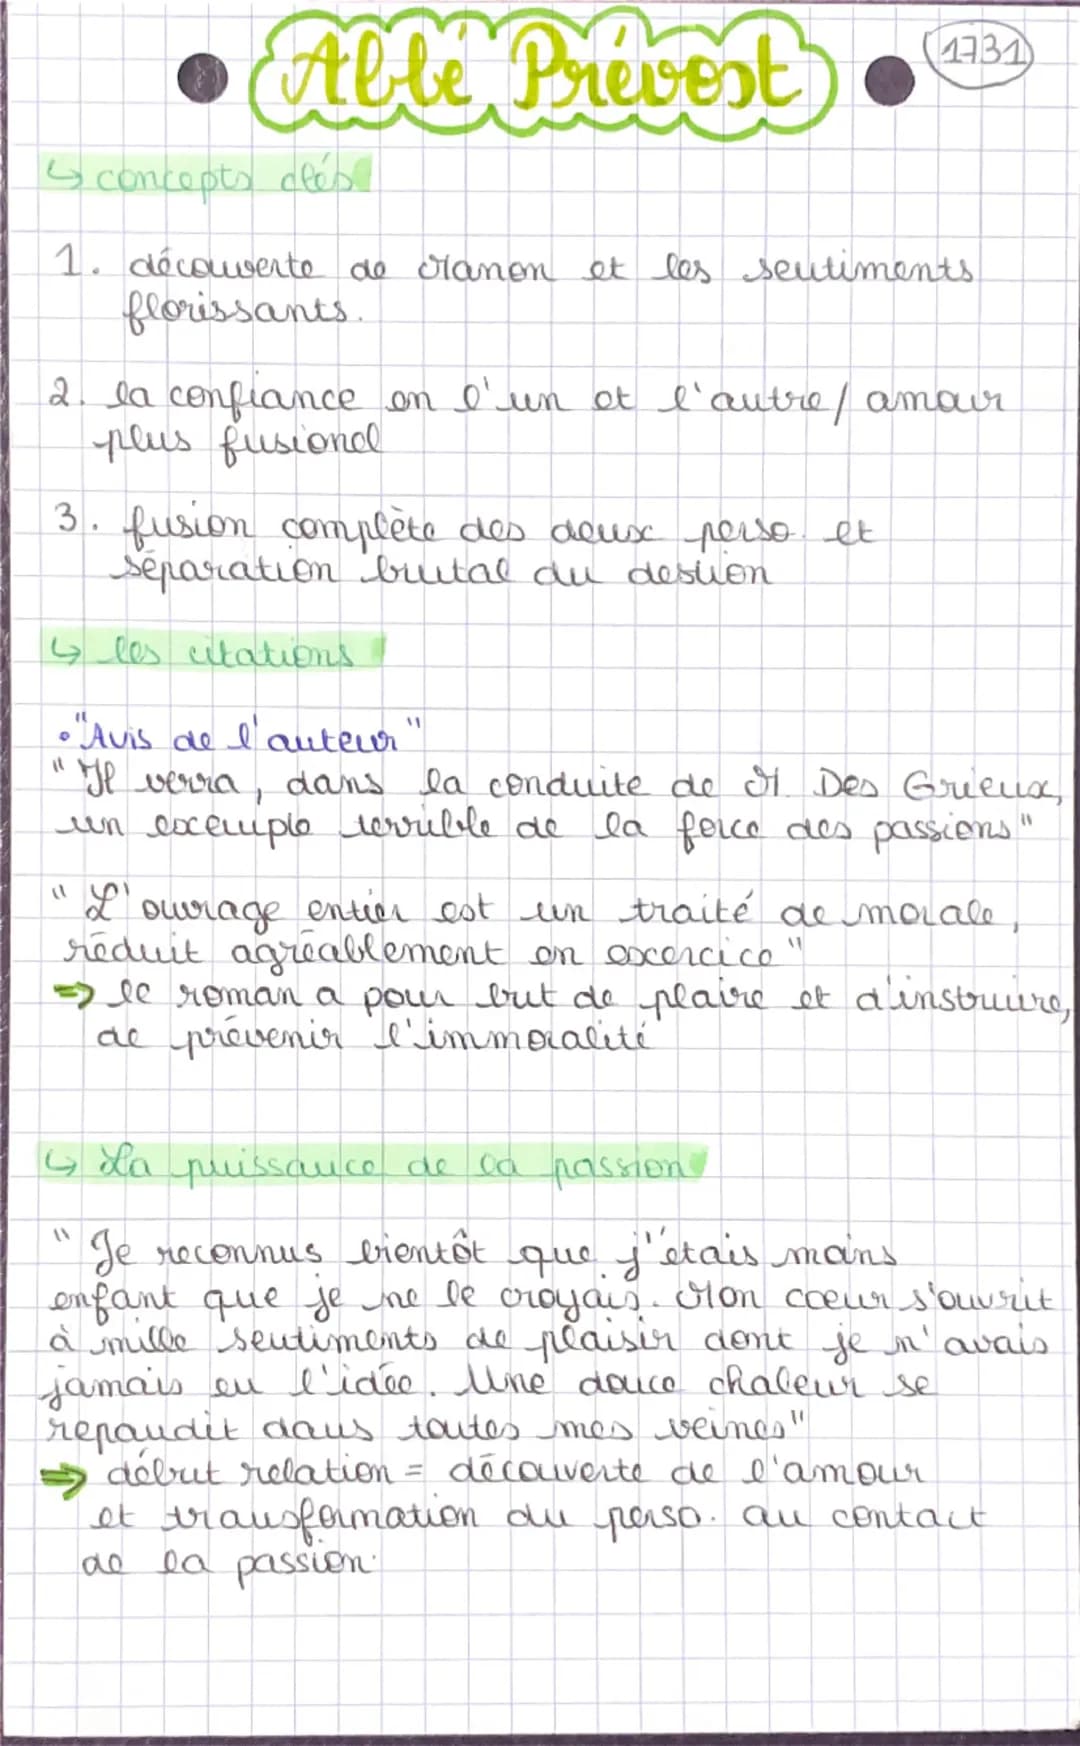 Abbé Prévost
1731
↳ concepts clés
1. découverte de Manon et les sentiments
florissants.
2. la confiance en l'un et l'autre / amour
plus fusionel
3. fusion complète des deux perso. et
séparation brutal du destion
↳ les citations
• "Avis de l'auteur"
"Il verra, dans la conduite de M. Des Grieux,
un excemple terrible de la force des passions"
"L'ouvrage entier est un traité de morale,
réduit agréablement en excercice"
⇒ le roman a pour but de plaire et d'instruire,
de prévenir l'immoralité
↳ La puissance de la passion
"Je reconnus bientôt que j'étais moins
enfant que je ne le croyais. Mon cœur s'ouvrit
à mille sentiments de plaisir dont je n'avais
jamais eu l'idée. Une douce chaleur se
repandit dans toutes mes veines"
⇒ début relation = découverte de l'amour
et transformation du perso. au contact
de la passion.